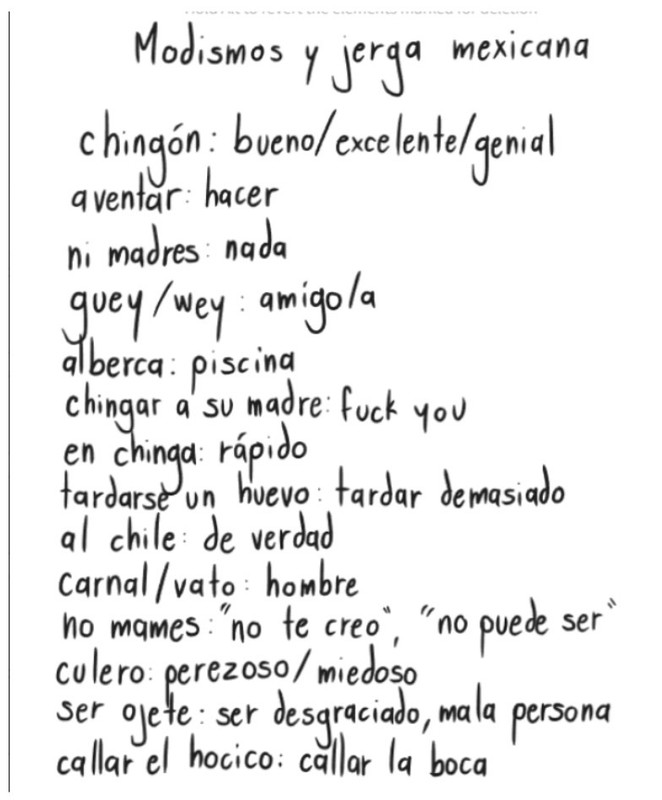 Modismos y jerga mexicana
chingón: bueno/excelente/genial
aventar: hacer
ni madres: nada
guey/wey: amigo/a
alberca: piscina
chingar a su madre: fuck you
en chinga: rápido
tardarse un huevo: tardar demasiado
al chile: de verdad
carnal/vato: hombre
no mames: "no te creo", "no puede ser"
culero: perezoso/miedoso
ser ojete: ser desgraciado, mala persona
callar el hocico: callar la boca